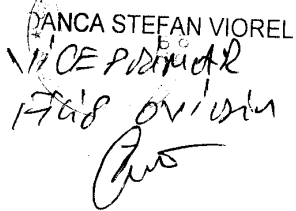 DANCA STEFAN VIOREL
VICEPRIMAR
OVIDIU